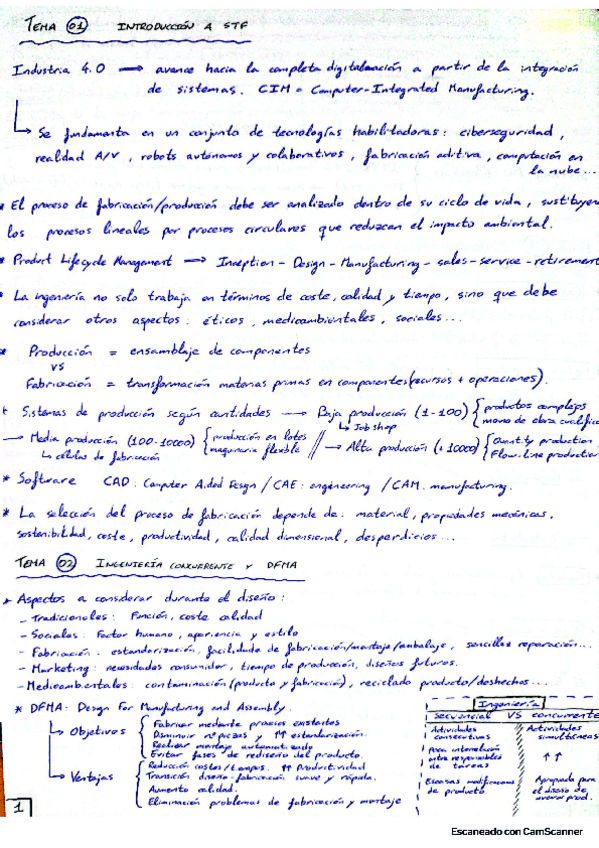 TEMA 01 INTRODUCCIÓN A STF
Industria 4.0 → avance hacia la completa digitalización a partir de la integración
de sistemas. CIM = Computer-Integrated Manufacturing.
Se fundamenta en un conjunto de tecnologías habilitadoras: ciberseguridad,
realidad A/V, robots autónomos y colaborativos, fabricación aditiva, computación en
la nube...
* El proceso de fabricación/producción debe ser analizado dentro de su ciclo de vida, sustituyen
los procesos lineales por procesos circulares que reduzcan el impacto ambiental.
* Product Lifecycle Management → Inception - Design - Manufacturing - sales - service - retirement
* La ingeniería no solo trabaja en términos de coste, calidad y tiempo, sino que debe
considerar otros aspectos: éticos, medioambientales, sociales...
* Producción = ensamblaje de componentes
vs
Fabricación = transformación materias primas en componentes (recursos + operaciones).
* Sistemas de producción según cantidades → Baja producción (1-100) { productos complejos
↳ Job shop mano de obra cualific
→ Media producción (100-10000) { producción en lotes // → Alta producción (+10000) { Quantity production
↳ células de fabricación maquinaria flexible Flow-line production
* Software CAD: Computer Aided Design / CAE: engineering / CAM: manufacturing.
* La selección del proceso de fabricación depende de: material, propiedades mecánicas,
sostenibilidad, coste, productividad, calidad dimensional, desperdicios...
TEMA 02 INGENIERÍA CONCURRENTE Y DFMA
* Aspectos a considerar durante el diseño:
- Tradicionales: Función, coste calidad
- Sociales: Factor humano, apariencia y estilo
- Fabricación: estandarización, facilidad de fabricación/montaje/embalaje, sencillez reparación...
- Marketing: necesidades consumidor, tiempo de producción, diseños futuros.
- Medioambientales: contaminación (producto y fabricación), reciclado producto/deshechos...
* DFMA: Design For Manufacturing and Assembly.
↳ Objetivos { Fabricar mediante procesos existentes
Disminuir nº piezas y ↑↑ estandarización.
Realizar montaje automatizado
Evitar fases de rediseño del producto.
↳ Ventajas { Reducción costes/tiempos. ↑↑ productividad
Transición diseño-fabricación suave y rápida.
Aumento calidad.
Eliminación problemas de fabricación y montaje
Ingeniería
secuencial VS concurrente
Actividades consecutivas Actividades simultáneas
Poca interrelación entre responsables de tareas ↑↑
Escasas modificaciones de producto Apropiada para el diseño de prod.
1
Escaneado con CamScanner